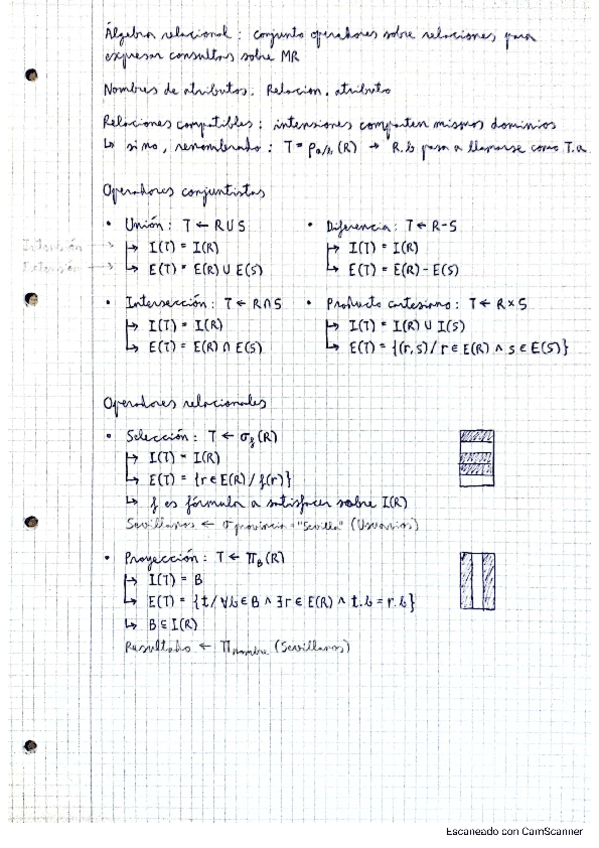 Álgebra relacional: conjunto operadores sobre relaciones para
expresar consultas sobre MR
Nombres de atributos: Relacion.atributo
Relaciones compatibles: intensiones comparten mismos dominios
↳ si no, renombrado: T = ρa/b (R) → R.b pasa a llamarse como T.a
Operadores conjuntistas
• Unión: T ← R ∪ S
↳ I(T) = I(R)
↳ E(T) = E(R) ∪ E(S)
Intensión →
Extensión →
• Diferencia: T ← R - S
↳ I(T) = I(R)
↳ E(T) = E(R) - E(S)
• Intersección: T ← R ∩ S
↳ I(T) = I(R)
↳ E(T) = E(R) ∩ E(S)
• Producto cartesiano: T ← R × S
↳ I(T) = I(R) ∪ I(S)
↳ E(T) = {(r,s) / r ∈ E(R) ∧ s ∈ E(S)}
Operadores relacionales
• Selección: T ← σf (R)
↳ I(T) = I(R)
↳ E(T) = {r ∈ E(R) / f(r)}
↳ f es fórmula a satisfacer sobre I(R)
Sevillanos ← σ provincia = "Sevilla" (Usuarios)
• Proyección: T ← ΠB (R)
↳ I(T) = B
↳ E(T) = {t / ∀b ∈ B ∧ ∃r ∈ E(R) ∧ t.b = r.b}
↳ B ⊆ I(R)
Resultado ← Πnombre (Sevillanos)
Escaneado con CamScanner